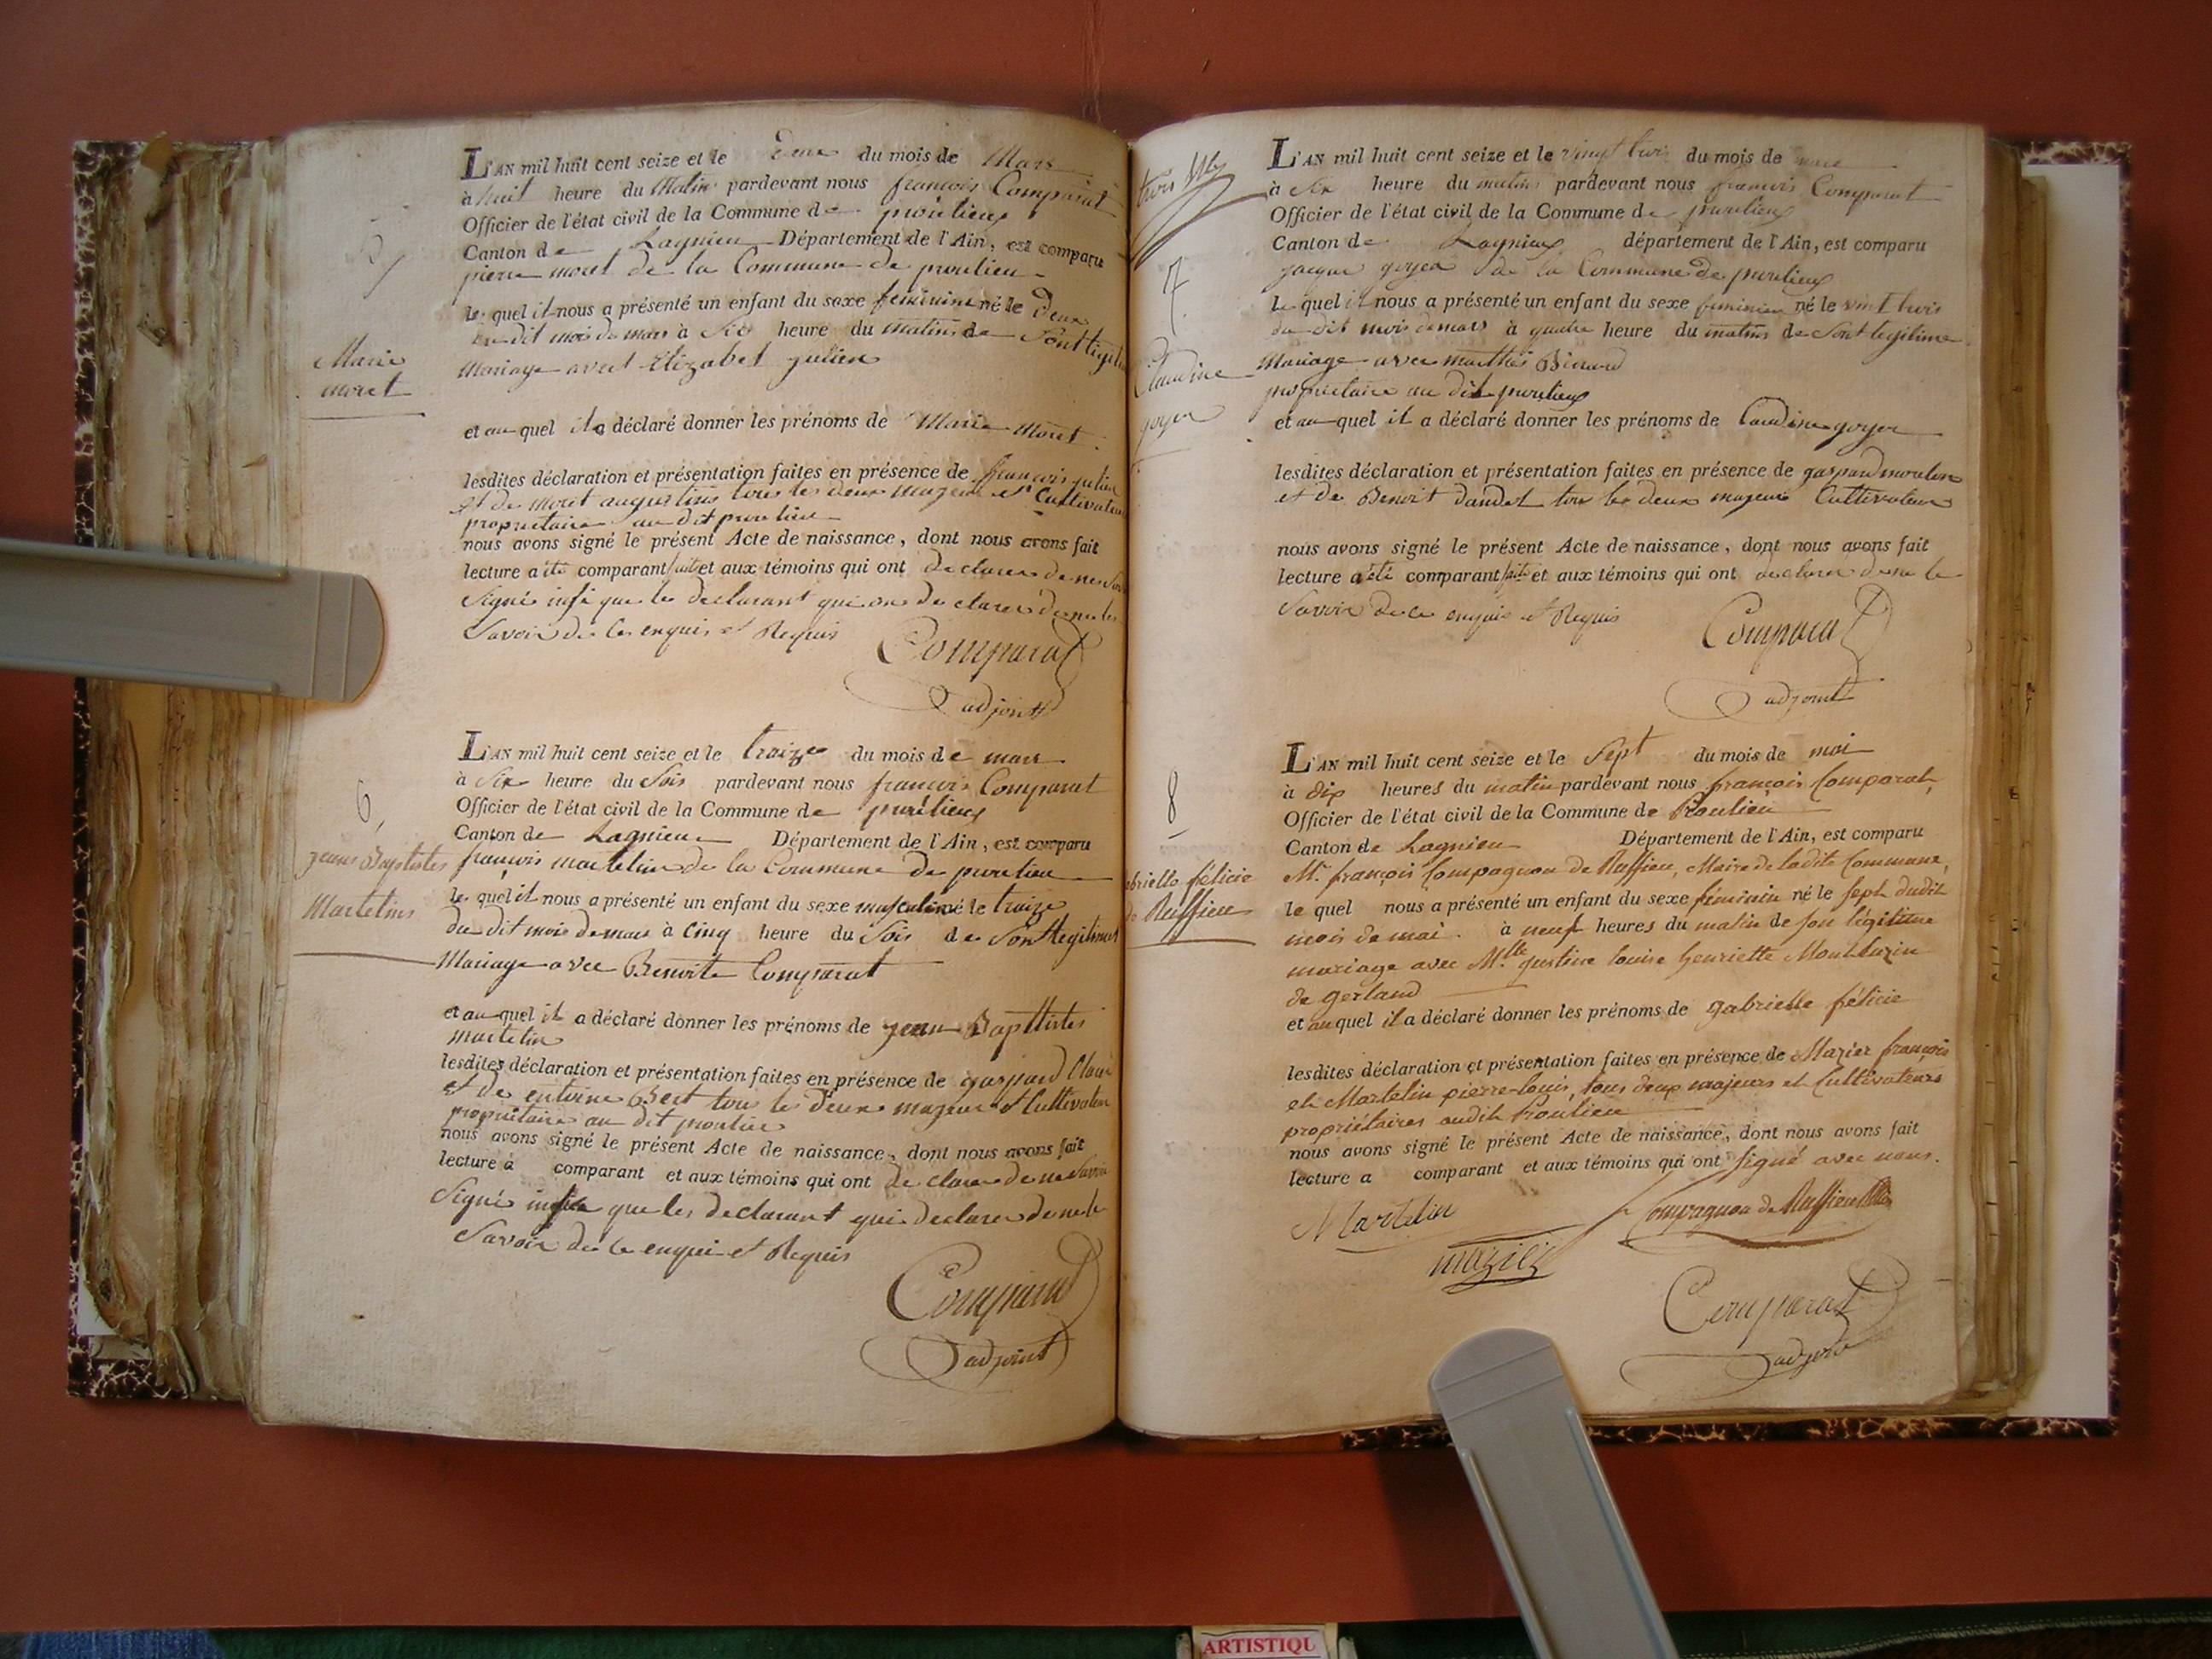 L'AN mil huit cent seize et le deux du mois de Mars
à huit heure du Matin pardevant nous francois Comparat
Officier de l'état civil de la Commune de proulieux
Canton de Lagnieu Département de l'Ain, est comparu
pierre moret de la Commune de proulieu
le quel il nous a présenté un enfant du sexe feminine né le Deux
du dit mois de mars à Six heure du matin de Sont legiti
Mariage avect Elizabet julien
5
Marie
moret
et au quel il a déclaré donner les prénoms de Marie Moret
lesdites déclaration et présentation faites en présence de françois julien
et de Moret augustins tous les deux mageur et Cultivateur
propriétaire au dit proulieu
nous avons signé le présent Acte de naissance, dont nous avons fait
lecture a été comparant fait et aux témoins qui ont declarer de ne Sav
Signé insi que le declarant qui on declarer de ne le
Savoir de ce enquis et Requis
Comparat
adjoint
L'AN mil huit cent seize et le traize du mois de mars
à Six heure du Soir pardevant nous francois Comparat
Officier de l'état civil de la Commune de proulieux
Canton de Lagnieu Département de l'Ain, est comparu
françois martelin de la Commune de proulieu
le quel il nous a présenté un enfant du sexe masculine né le traize
du dit mois de mars à Cinq heure du Soir de Sont legitimes
Mariage avec Benoite Comparat
6
jeans Baptistes
Martelins
et au quel il a déclaré donner les prénoms de jean Baptistes
martelin
lesdites déclaration et présentation faites en présence de gaspard
et de entoine Bert tous le deux mageur et Cultivateur
propriétaire au dit proulieu
nous avons signé le présent Acte de naissance, dont nous avons fait
lecture à comparant et aux témoins qui ont de clarer de ne Savoir
Signé insi que les declarant qui declarer de ne le
Savoir de ce enquis et Requis
Comparat
adjoint
L'AN mil huit cent seize et le vingt trois du mois de mars
à Six heure du matin pardevant nous francois Comparat
Officier de l'état civil de la Commune de proulieux
Canton de Lagnieux département de l'Ain, est comparu
jacque goyer de la Commune de proulieux
le quel il nous a présenté un enfant du sexe feminien né le vint trois
du dit mois de mars à quatre heure du matin de Sont legitime
Mariage avec
propriétaire au dit proulieux
7
Claudine
goyer
et au quel il a déclaré donner les prénoms de Claudine goyer
lesdites déclaration et présentation faites en présence de gaspard
et de Benoit dandet tous les deux mageur Cultivateur
nous avons signé le présent Acte de naissance, dont nous avons fait
lecture a été comparant fait et aux témoins qui ont declarer de ne le
Savoir de ce enquis et Requis
Comparat
adjoint
L'AN mil huit cent seize et le Sept du mois de mai
à dix heures du matin pardevant nous françois Comparat,
Officier de l'état civil de la Commune de Proulieu
Canton de Lagnieu Département de l'Ain, est comparu
Mr. françois Compagnon de Ruffieu, Maire de ladite Commune,
le quel nous a présenté un enfant du sexe féminin né le sept dudit
mois de mai. à neuf heures du matin de son légitime
mariage avec M.lle justine louise henriette Monthuzin
de gerland
8
brielle félicie
de Ruffieu
et au quel il a déclaré donner les prénoms de gabrielle félicie
lesdites déclaration et présentation faites en présence de Mazier françois
et Martelin pierre-louis, tous deux majeurs et Cultivateurs
propriétaires audit Proulieu
nous avons signé le présent Acte de naissance, dont nous avons fait
lecture a comparant et aux témoins qui ont Signé avec nous.
Martelin
Compagnon de Ruffieu
mazier
Comparat
adjoint
ARTISTIQU